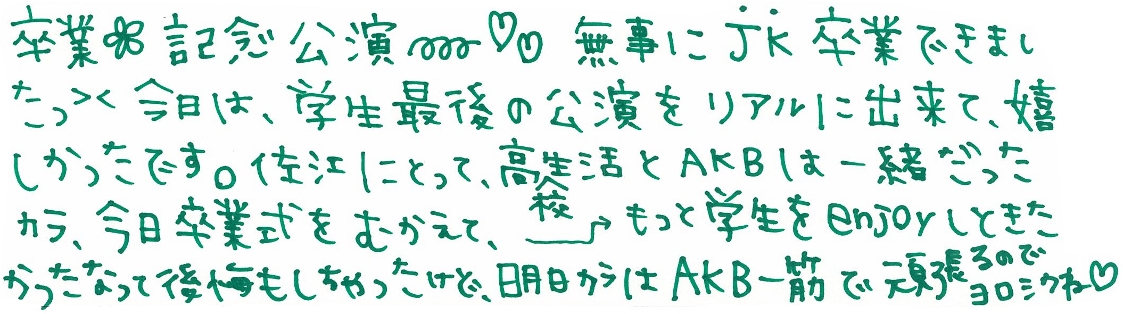 卒業✿記念公演〰♡♡ 無事にJK卒業できまし
たっ>< 今日は、学生最後の公演をリアルに出来て、嬉
しかったです。佐江にとって、高校生活とAKBは一緒だった
カラ、今日卒業式をむかえて、もっと学生をenjoyしときた
かったなって後悔もしちゃったけど、明日からはAKB一筋で頑張るのでヨロシクね♡